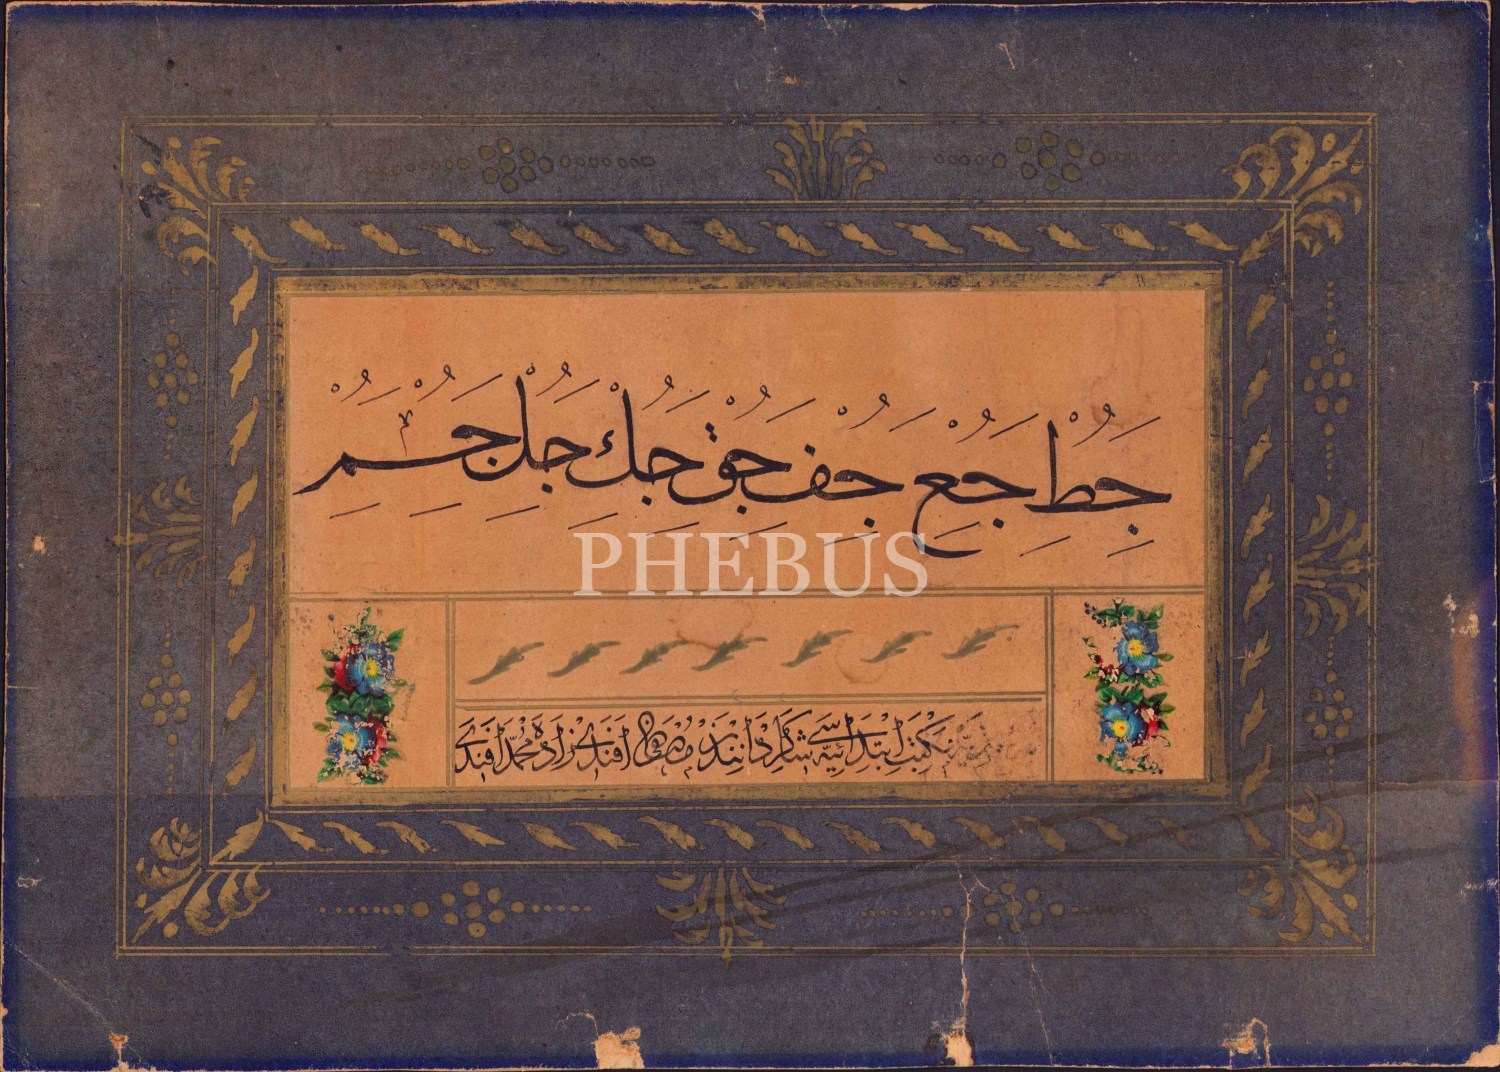 جَُطِْ جَُعِْ جَُفِْ جَُقِْ جَُكِْ جَُلِْ جَُمِْ
PHEBUS
مكتب ابتدائیه سی شاكردانندن مصطفی افندی زاده محمد افندی